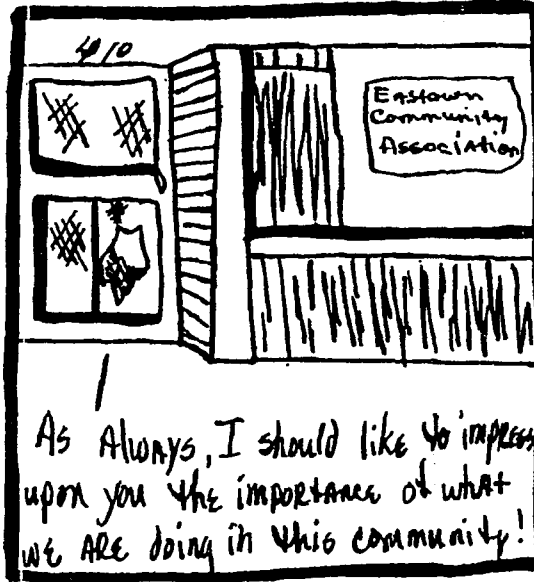 410
Eastown
Community
Association
As Always, I should like to impress
upon you the importance of what
we are doing in this community!